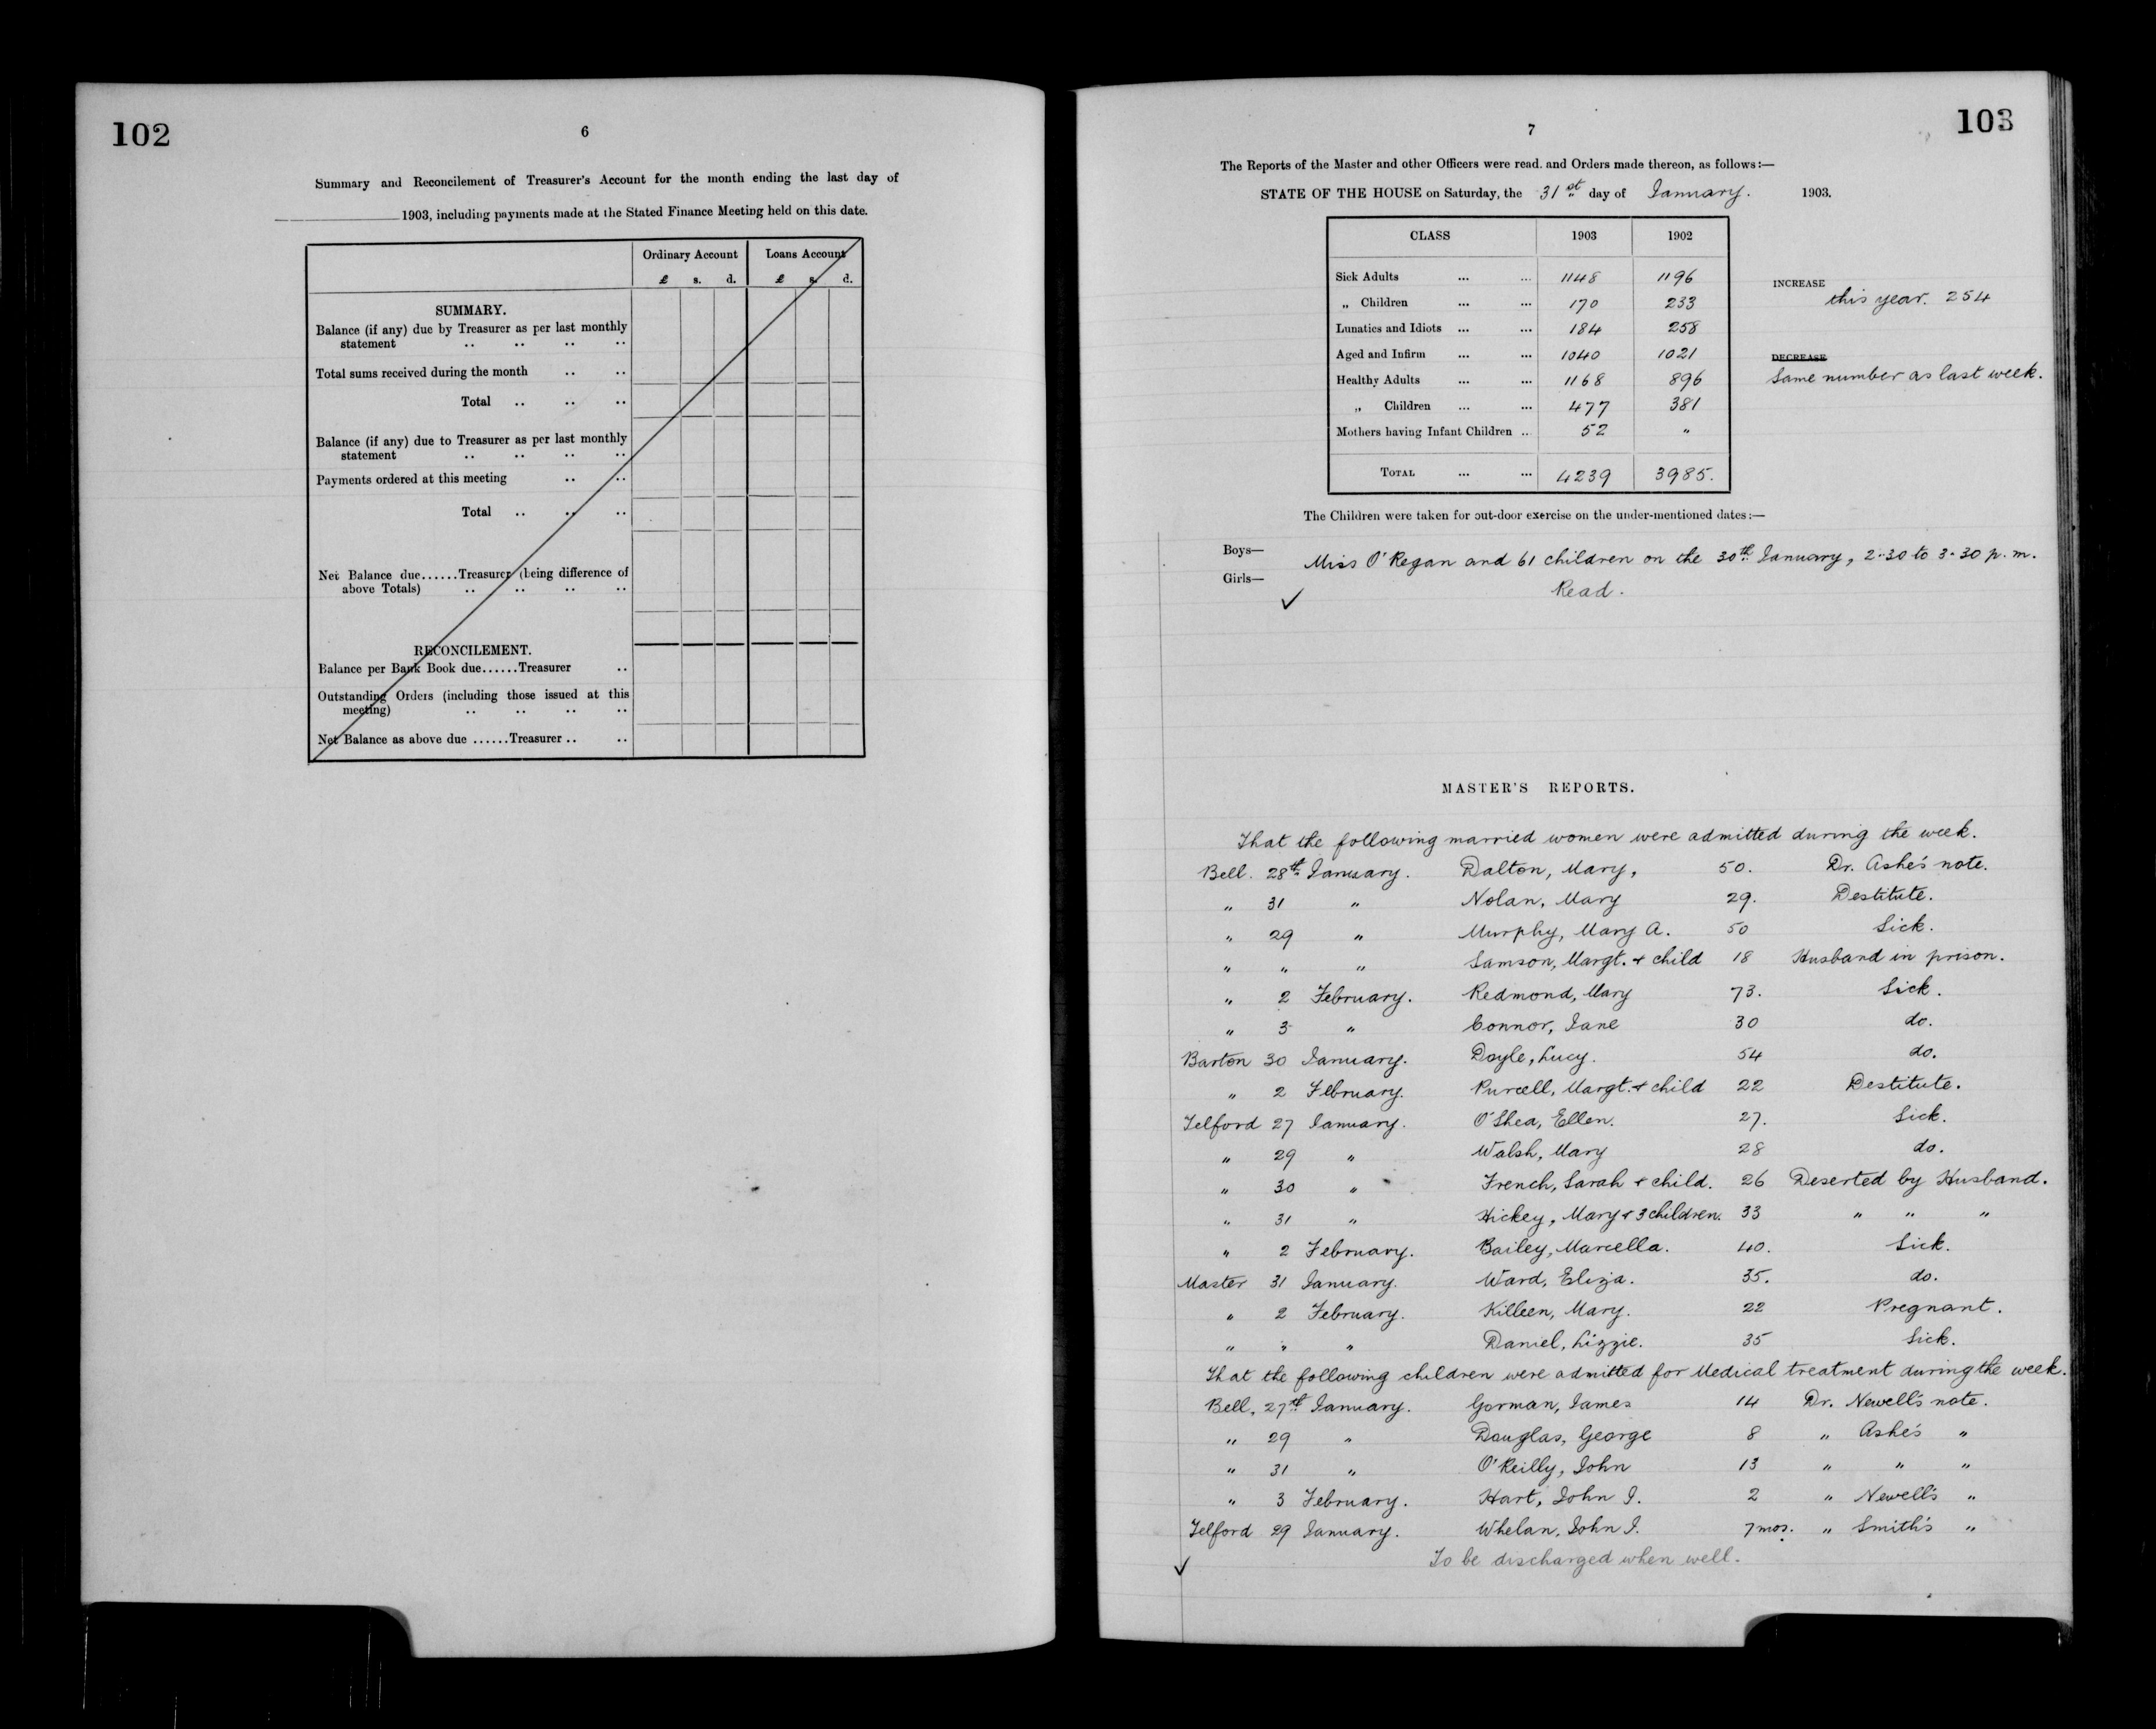 102
6
Summary and Reconcilement of Treasurer's Account for the month ending the last day of
1903, including payments made at the Stated Finance Meeting held on this date.
Ordinary Account Loans Account
£ s. d. £ s. d.
SUMMARY.
Balance (if any) due by Treasurer as per last monthly
statement .. .. .. ..
Total sums received during the month .. ..
Total .. .. ..
Balance (if any) due to Treasurer as per last monthly
statement .. .. .. ..
Payments ordered at this meeting .. ..
Total .. .. ..
Net Balance due......Treasurer (being difference of
above Totals) .. .. .. ..
RECONCILEMENT.
Balance per Bank Book due......Treasurer ..
Outstanding Orders (including those issued at this
meeting) .. .. .. ..
Net Balance as above due ......Treasurer .. ..
103
7
The Reports of the Master and other Officers were read. and Orders made thereon, as follows:—
STATE OF THE HOUSE on Saturday, the 31st day of January. 1903.
CLASS 1903 1902
Sick Adults ... ... 1148 1196
„ Children ... ... 170 233
Lunatics and Idiots ... ... 184 258
Aged and Infirm ... ... 1040 1021
Healthy Adults ... ... 1168 896
„ Children ... ... 477 381
Mothers having Infant Children .. 52 "
TOTAL ... ... 4239 3985.
INCREASE
this year. 254
DECREASE
Same number as last week.
The Children were taken for out-door exercise on the under-mentioned dates:—
Boys—
Miss O'Regan and 61 children on the 30th January, 2-30 to 3-30 p.m.
Girls—
✓ Read.
MASTER'S REPORTS.
That the following married women were admitted during the week.
Bell. 28th January. Dalton, Mary, 50. Dr. Ashe's note.
" 31 " Nolan, Mary 29. Destitute.
" 29 " Murphy, Mary A. 50 Sick.
" " " Samson, Margt. & child 18 Husband in prison.
" 2 February. Redmond, Mary 73. Sick.
" 3 " Connor, Jane 30 do.
Barton 30 January. Doyle, Lucy. 54 do.
" 2 February. Purcell, Margt. & child 22 Destitute.
Telford 27 January. O'Shea, Ellen. 27. Sick.
" 29 " Walsh, Mary 28 do.
" 30 " French, Sarah & child. 26 Deserted by Husband.
" 31 " Hickey, Mary & 3 children. 33 " " "
" 2 February. Bailey, Marcella. 40. Sick.
Master 31 January. Ward, Eliza. 35. do.
" 2 February. Killeen, Mary. 22 Pregnant.
" " " Daniel, Lizzie. 35 Sick.
That the following children were admitted for Medical treatment during the week.
Bell, 27th January. Gorman, James 14 Dr. Newell's note.
" 29 " Douglas, George 8 " Ashe's "
" 31 " O'Reilly, John 13 " " "
" 3 February. Hart, John J. 2 " Newell's "
Telford 29 January. Whelan, John J. 7 mos. " Smith's "
✓ To be discharged when well.